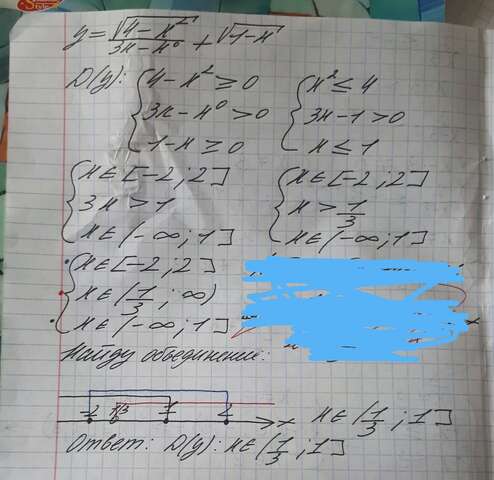 y = √(4-x²)/(3x-x⁰) + √(1-x)
D(y): { 4-x² ≥ 0 { x² ≤ 4
3x-x⁰ > 0 3x-1 > 0
1-x ≥ 0 x ≤ 1
{ x ∈ [-2; 2] { x ∈ [-2; 2]
3x > 1 x > 1/3
x ∈ (-∞; 1] x ∈ (-∞; 1]
{ x ∈ [-2; 2]
x ∈ (1/3; ∞)
x ∈ (-∞; 1]
Найду объединение:
-2 1/3 1 2 x x ∈ (1/3; 1]
Ответ: D(y): x ∈ (1/3; 1]